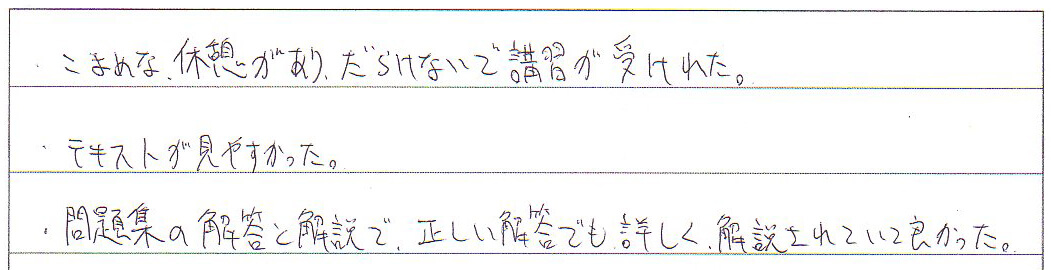 ・こまめな、休憩があり、だらけないで講習が受けれた。
・テキストが見やすかった。
・問題集の解答と解説で、正しい解答でも、詳しく、解説されていて良かった。